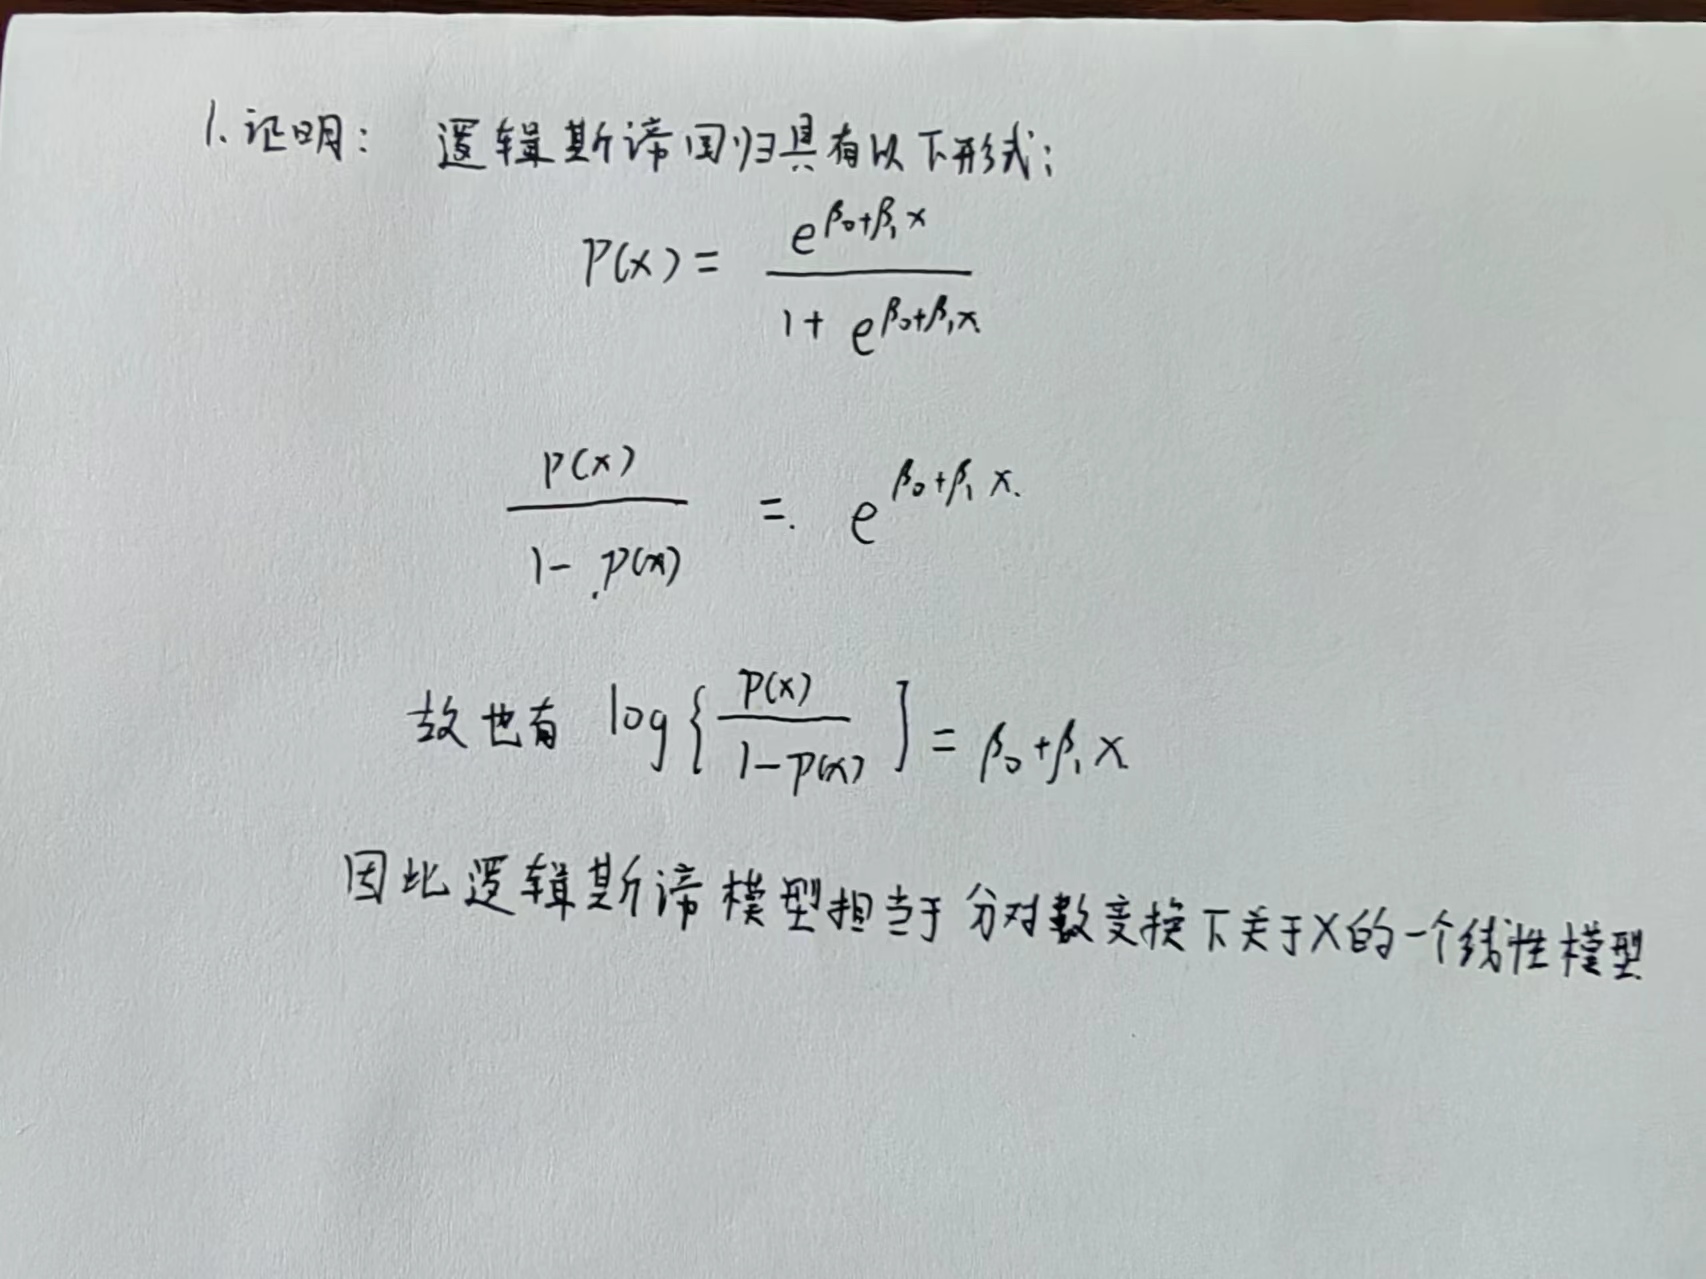 1. 证明： 逻辑斯谛回归具有以下形式：
P(x) = e^{β₀+β₁x} / (1 + e^{β₀+β₁x})
P(x) / (1 - P(x)) = e^{β₀+β₁x}
故也有 log{P(x) / (1-P(x))] = β₀+β₁x
因此逻辑斯谛模型相当于分对数变换下关于X的一个线性模型